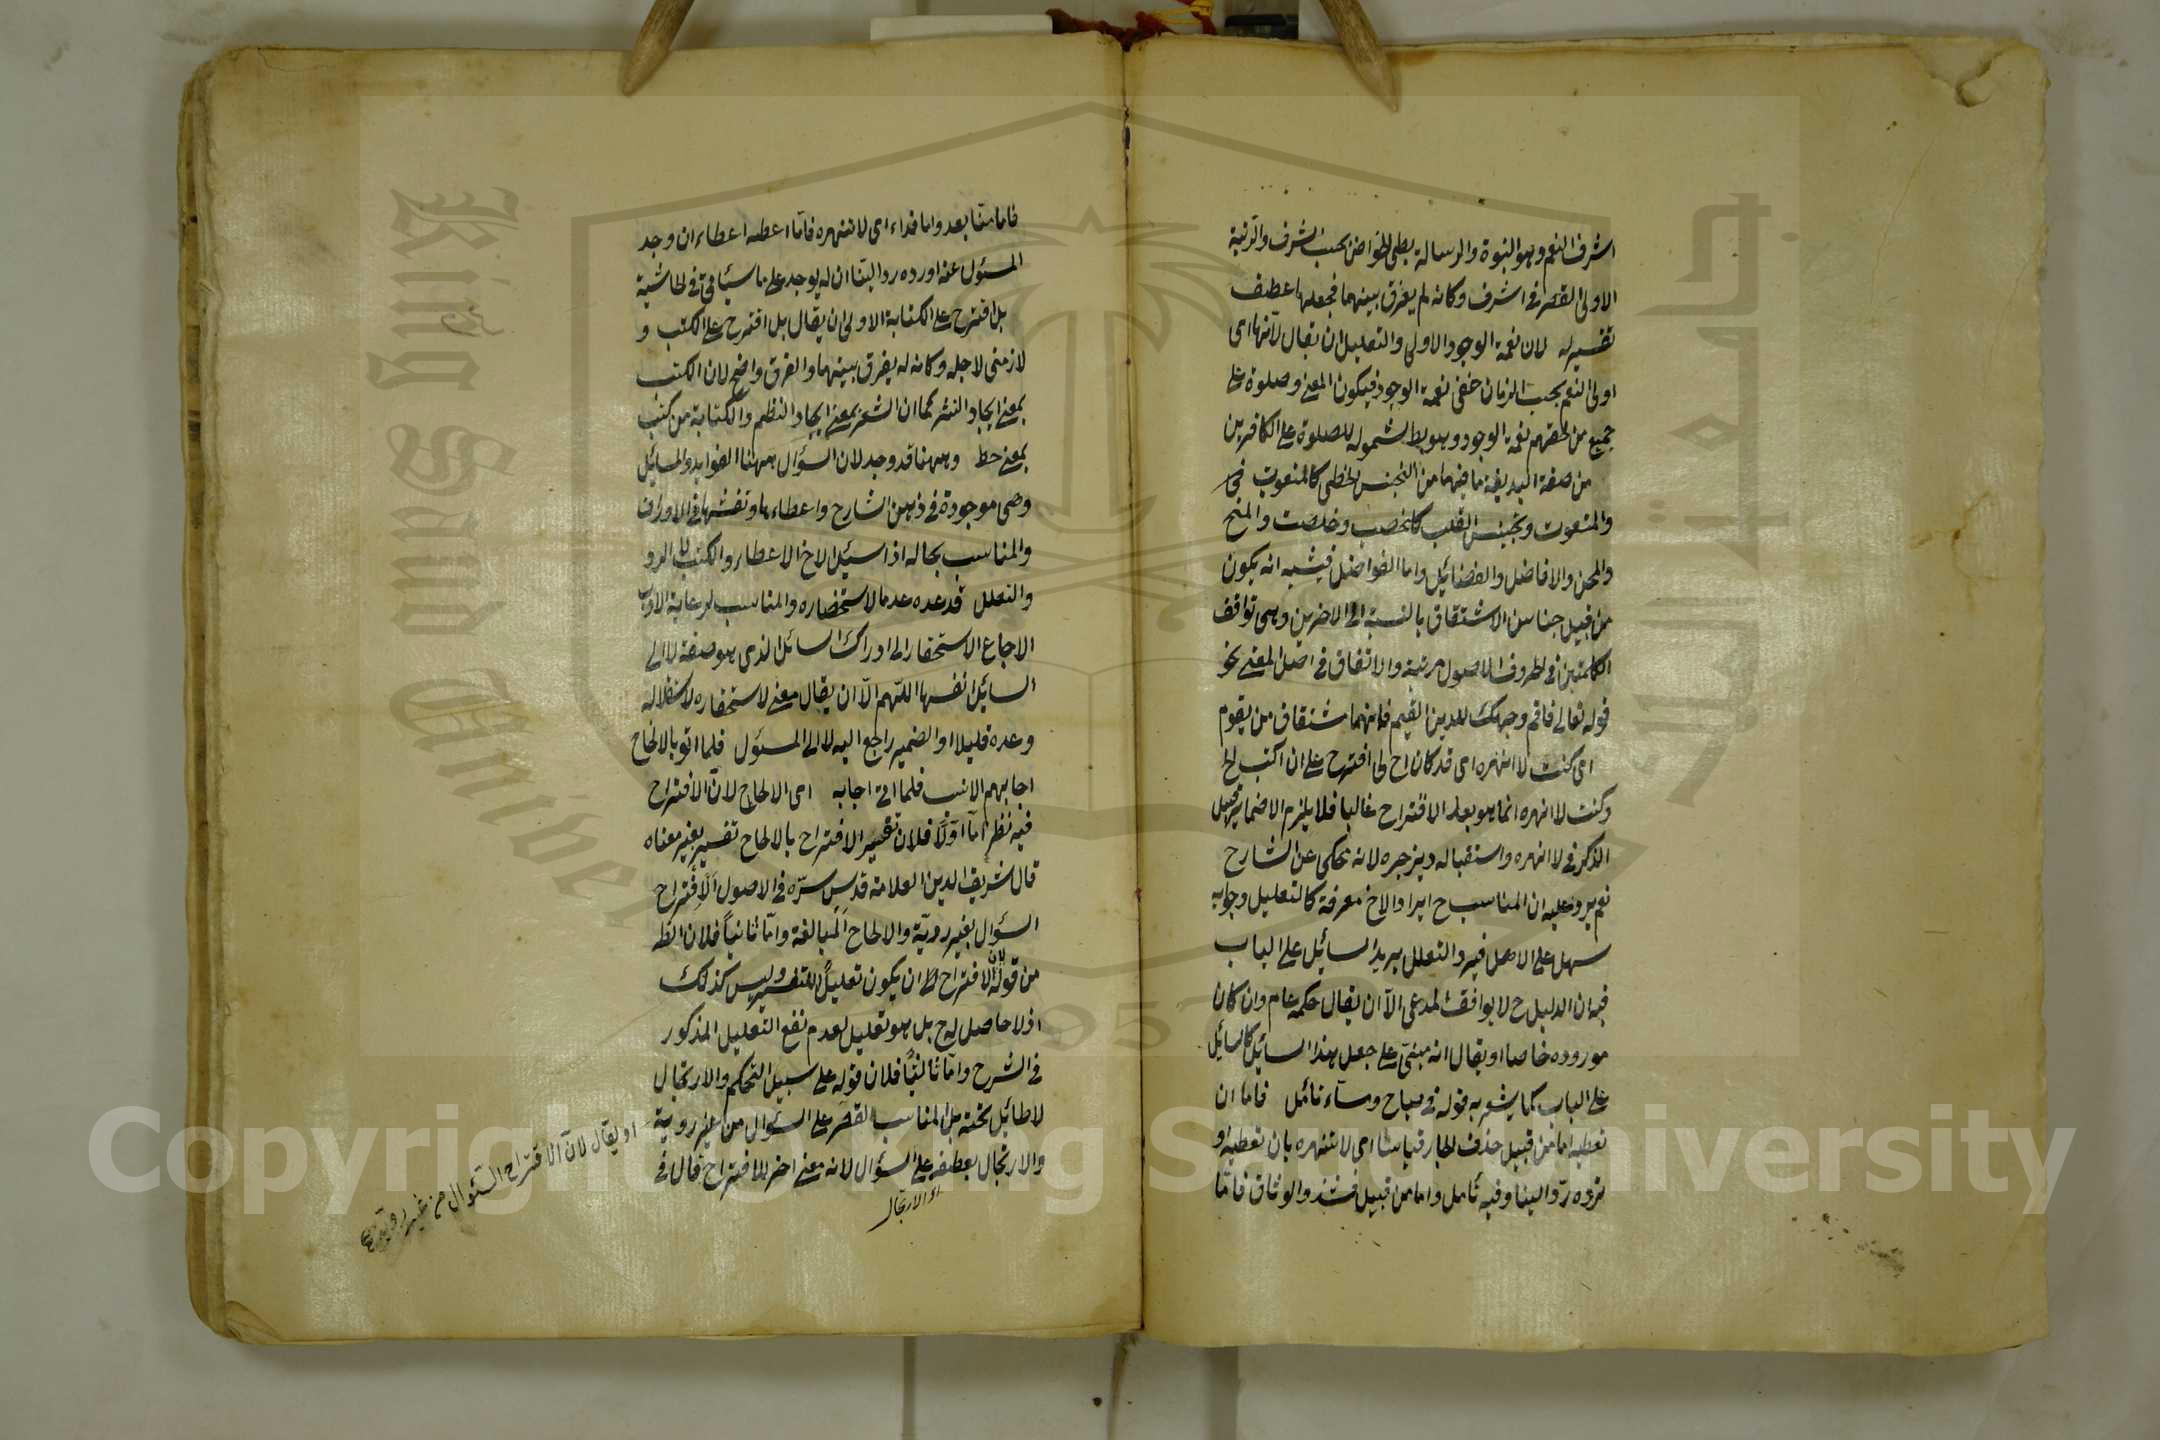 اشرف النعم وهو النبوة والرسالة يطى لخواص بحسب الشرف والرتبة
الاولى القصر فى اشرف وكانه لم يفرق بينهما فجعلها عطف
تفسير له لان نعمة الوجود الاولى والتعليل ان يقال لانها اى
اولى النعم بحسب الزمان خفى نعمة الوجود فيكون المعنى وصلوة على
جميع من لحقتهم نعمة الوجود وهو بط لشموله للصلوة على الكافرين
من صفة البديعة ما فيهما من التجنيس الخطى كالمنعوت فى
والمنعوت وتجنيس القلب كالخصت وخلصت والمنح
والمحن والافاضل والفضائل واما الفواضل فيشبه انه يكون
من قبيل جناس الاشتقاق بالنسبة الى الاخرين وهى توافق
الكلمتين فى الحروف الاصول مرتبة والاتفاق فى اصل المعنى نحو
قوله تعالى فاقم وجهك للدين القيم فانهما مشتقان من يقوم
اى كنت لا انهره اى قد كان اح لى اقترح على ان اكتب لخ
وكنت لا انهره انما هو بعد الاقتراح غالبا فلا يلزم الاضمار قبيل
الذكر فى لا انهره واستقباله ديزجره لانه يحكى عن الشارح
نعم يرد عليه ان المناسب ح ايراد الاخ معرفة كالتعليل وجوابه
سهل على الاصل فيه والتعلل يريد السائل على الباب
فيه ان الدليل ح لا يوافق المدعى الا ان يقال حكمه عام وان كان
مورده خاصا او يقال انه مبنى على جعل هذا السائل كالسائل
على الباب كما يشعر به قوله فى صباح ومساء تأمل فاما ان
تعطيه اما من قبيل حذف الجار قياسا اى لا تنهره بان تعطيه او
ترده ردا لينا وفيه تأمل واما من قبيل فشدوا الوثاق فاما
فاما منا بعد واما فداء اى لا تنهره فاما اعطه اعطاء ان وجد
المسؤل عنه او رده ردا لينا ان لم يوجد على ما سيأتى فى الحاشية
بل اقترح على الكتابة الاولى ان يقال بل اقترح على الكتب و
لازمنى لاجله وكانه لم يفرق بينهما والفرق واضح لان الكتب
بمعنى ايجاد النثر كما ان الشعر بمعنى ايجاد النظم والكتابة من كتب
بمعنى خط وههنا قد وجد لان السؤال ههنا الفوايد والمسائل
وهى موجودة فى ذهن الشارح واعطاءها ونقشها فى الاوراق
والمناسب بحاله اذا سئل الاخ الاعطاء والكتب لا الرد
والتعلل قد عده عدما لاستحضاره والمناسب لرعاية الادب
الارجاع الاستحقار الى ادراك السائل الذى هو صفة لا الى
السائل نفسها اللهم الا ان يقال معنى لاستحقاره لاستقلاله
وعده قليلا او الضمير راجع اليه لا الى المسئول فلما اتو بالالحاح
اجابهم الانسب فلما اتى اجابه اى الالحاح لان الاقتراح
فيه نظر اما اولا فلان تفسير الاقتراح بالالحاح تفسير بغير معناه
قال شريف الدين العلامة قدس سره فى الاصول الاقتراح
السؤال بغير روية والالحاح المبالغة واما ثانيا فلان الظ
من قوله لان الاقتراح لخ ان يكون تعليلا للتفسير وليس كذلك
اذ لا حاصل له ح بل هو تعليل لعدم نفع التعليل المذكور
فى الشرح واما ثالثا فلان قوله على سبيل التحكم والارتجال
لا طائل تحته بل المناسب القصر على السؤال من غير روية
والارتجال بعطفه على السؤال لانه معنى اخر للاقتراح قال فى
اى الارتجال
او يقال لان الاقتراح السئوال من غير روية
Copyright © King Saud University
King Saud University
1957